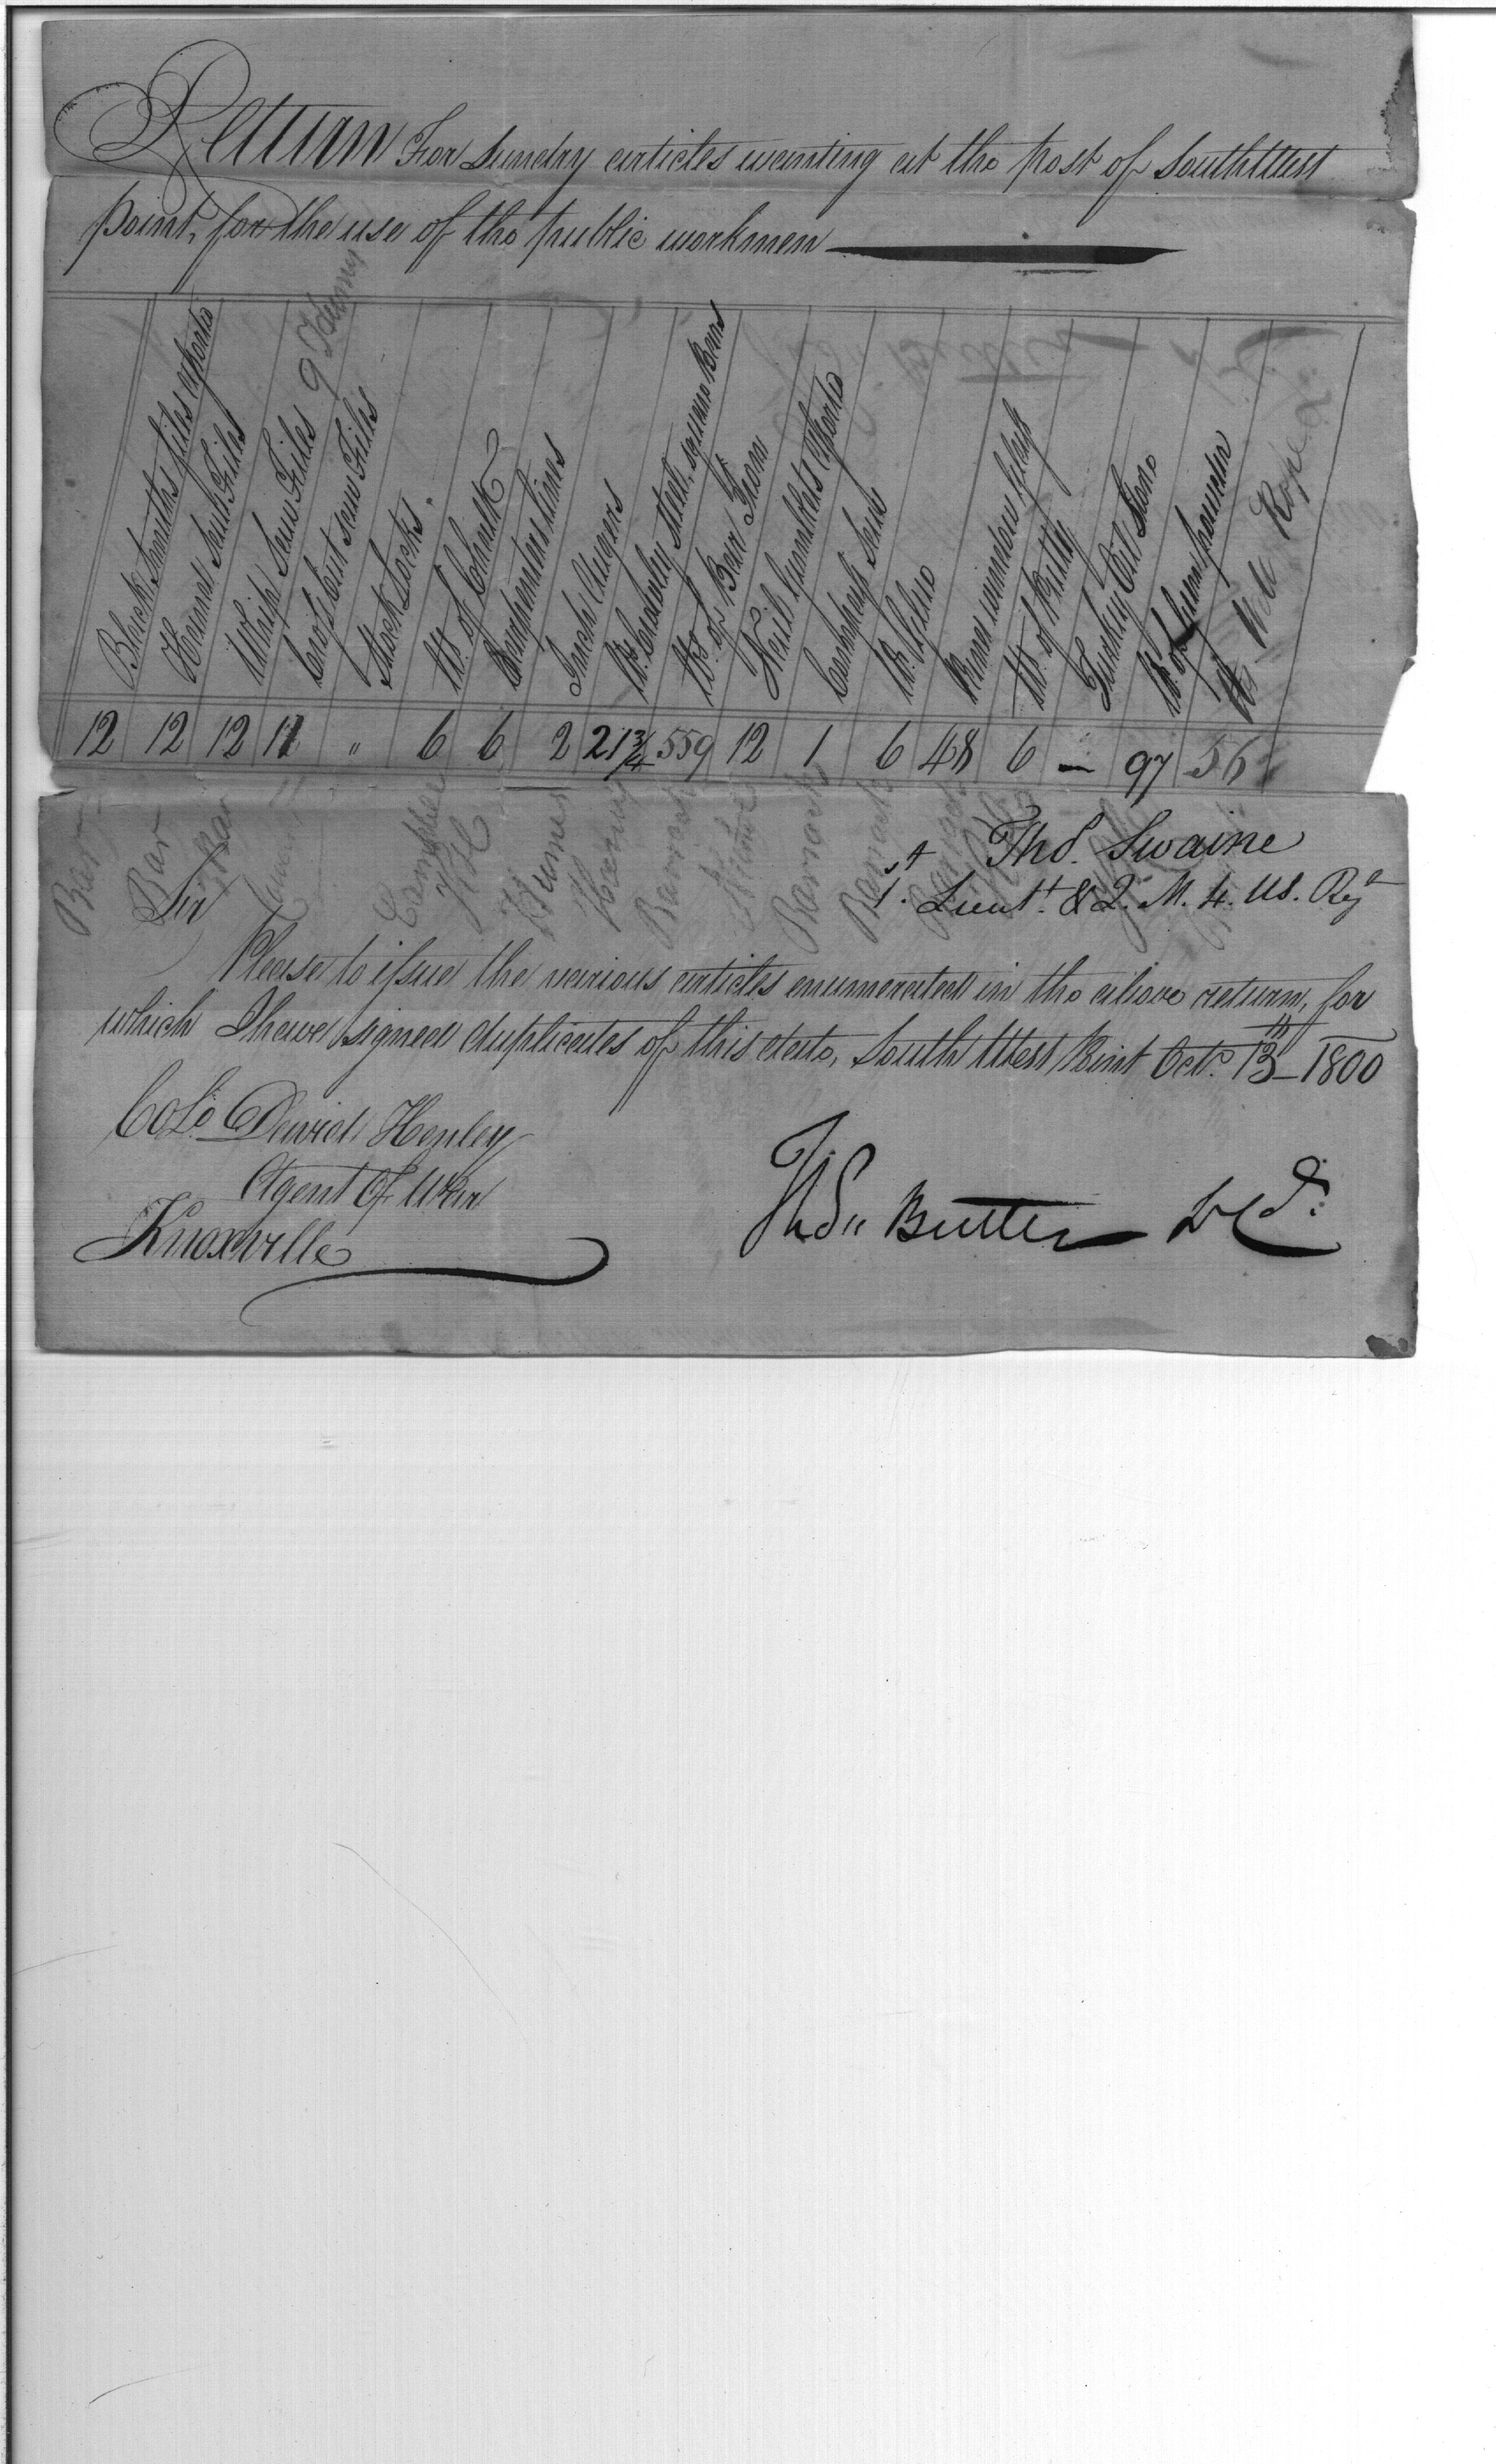 Return For Sundry articles wanting at the post of South West
point, for the use of the public workmen
Black Smiths files assorted
Hand Saw Files
Whip Saw Files 9
Cross Cut saw Files
Stock Locks.
lbs. of Chalk
Carpenters lines
Inch Augers
lb. Crowley Steel, square Bars
lbs. of Bar Iron
Nail Gimblets assorted
Compass Saw
lb. Glue
Panes window Glass
lbs. of Putty
Turkey Oil Stone
lb. of Gunpowder
lbs. Well Rope
12 12 12 12 " 6 6 2 21 3/4 559 12 1 6 48 6 — 97 56
Bar Bar Bar Campbell Humes Barrack Barrack Barrack
Thos. Swaine
1st. Lieut. & Q. M. 4. US. Regt
Sir
Please to issue the various articles enumerated in the above return, for
which I have signed duplicates of this date, South West Point Octo. 13th 1800
Colo David Henley
Agent of War
Knoxville
Thos. Butler